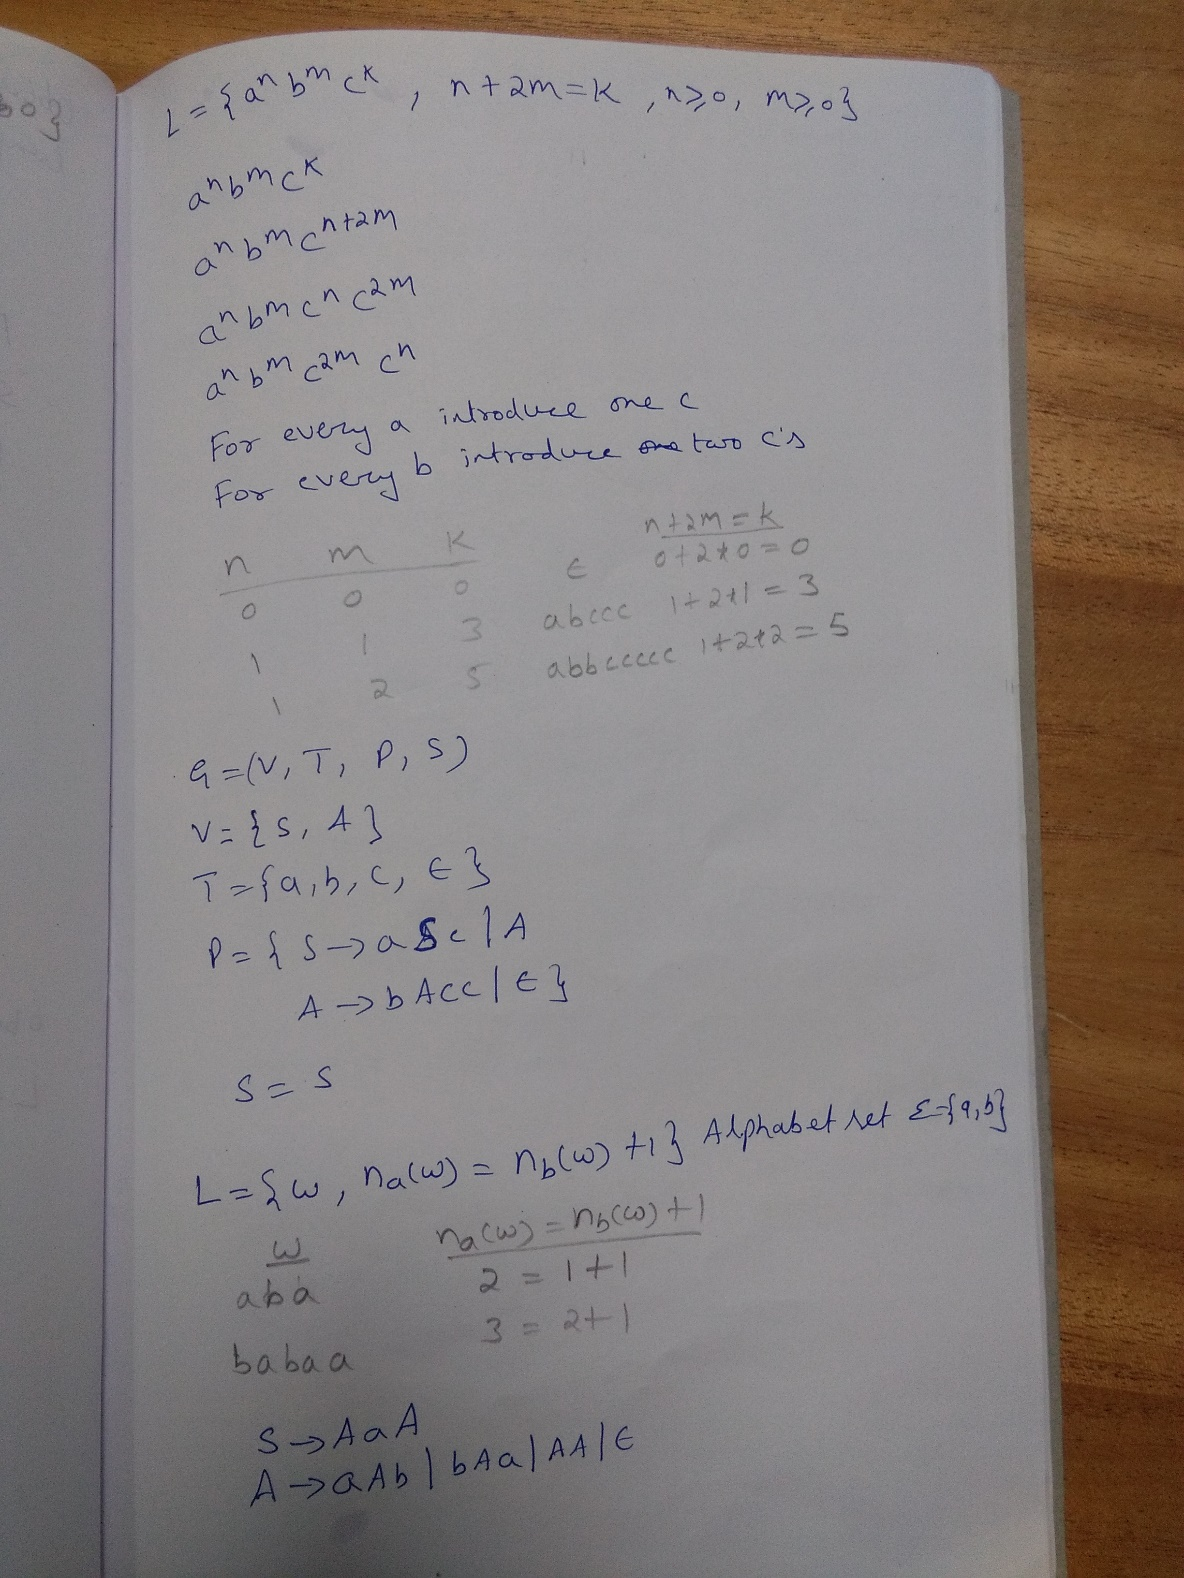 L = {aⁿ bᵐ cᵏ , n+2m=k , n≥0, m≥0}
aⁿ bᵐ cᵏ
aⁿ bᵐ cⁿ⁺²ᵐ
aⁿ bᵐ cⁿ c²ᵐ
aⁿ bᵐ c²ᵐ cⁿ
For every a introduce one c
For every b introduce two c's
n m k n+2m=k
0 0 0 ∈ 0+2*0=0
1 1 3 abccc 1+2*1=3
1 2 5 abbccccc 1+2*2=5
G=(V, T, P, S)
V={S, A}
T={a,b,c,∈}
P={S→aSc|A
A→bAcc|∈}
S=S
L={ω, nₐ(ω) = n_b(ω) +1} Alphabet set Σ={a,b}
ω nₐ(ω)=n_b(ω)+1
aba 2 = 1+1
babaa 3 = 2+1
S→AaA
A→aAb|bAa|AA|∈